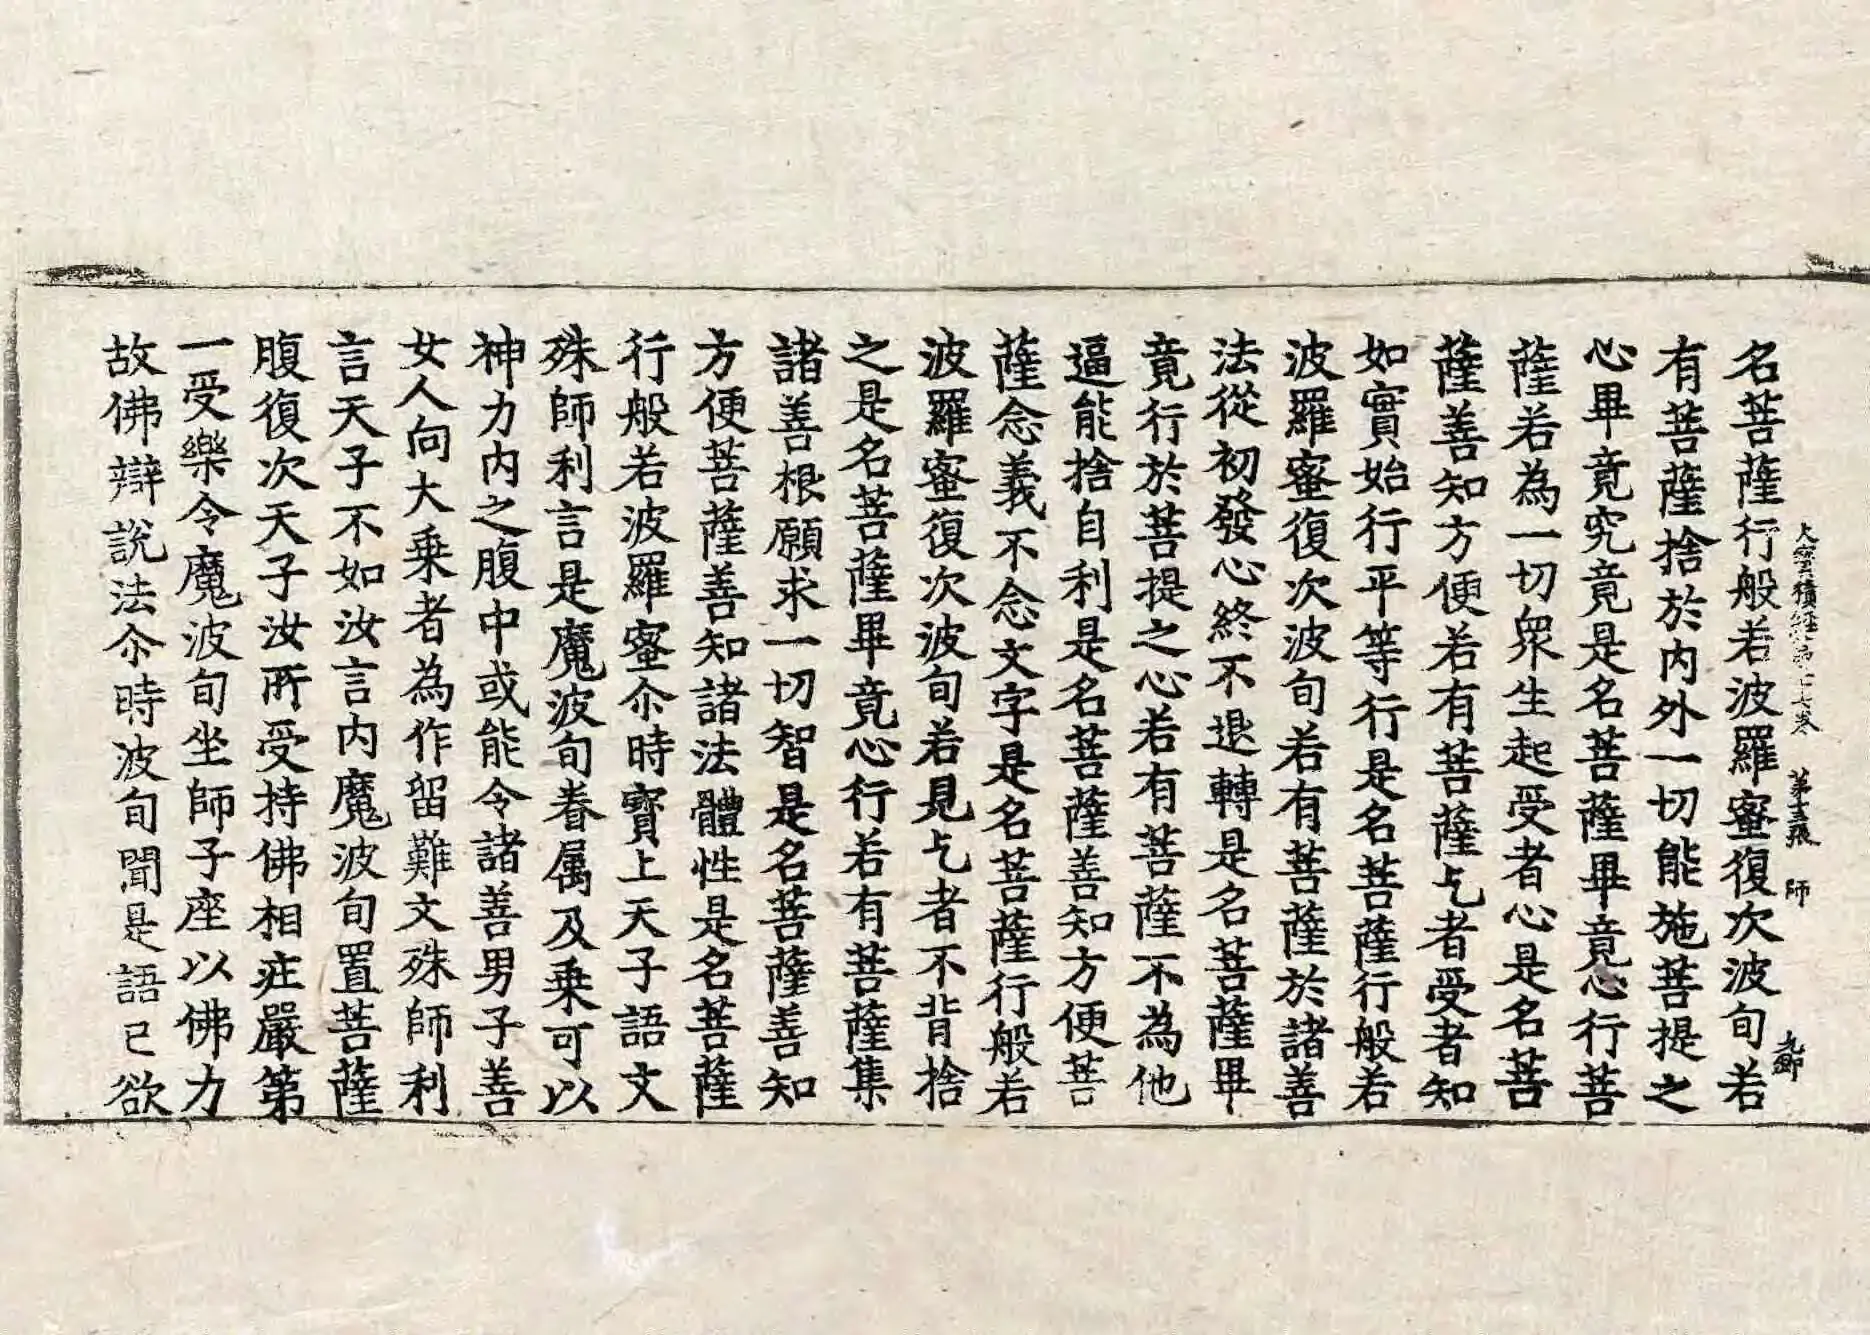 大寶積經第廿七卷 第 張 師
名菩薩行般若波羅蜜復次波旬若
有菩薩捨於内外一切能施菩提之
心畢竟究竟是名菩薩畢竟心行菩
薩若為一切衆生起受者心是名菩
薩善知方便若有菩薩乞者受者知
如實始行平等行是名菩薩行般若
波羅蜜復次波旬若有菩薩於諸善
法從初發心終不退轉是名菩薩畢
竟行於菩提之心若有菩薩不為他
逼能捨自利是名菩薩善知方便菩
薩念義不念文字是名菩薩行般若
波羅蜜復次波旬若見乞者不背捨
之是名菩薩畢竟心行若有菩薩集
諸善根願求一切智是名菩薩善知
方便菩薩善知諸法體性是名菩薩
行般若波羅蜜尒時寳上天子語文
殊師利言是魔波旬眷属及乗可以
神力内之腹中或能令諸善男子善
女人向大乗者為作留難文殊師利
言天子不如汝言内魔波旬置菩薩
腹復次天子汝所受持佛相庄嚴第
一受樂令魔波旬坐師子座以佛力
故佛辯説法尒時波旬聞是語已欲